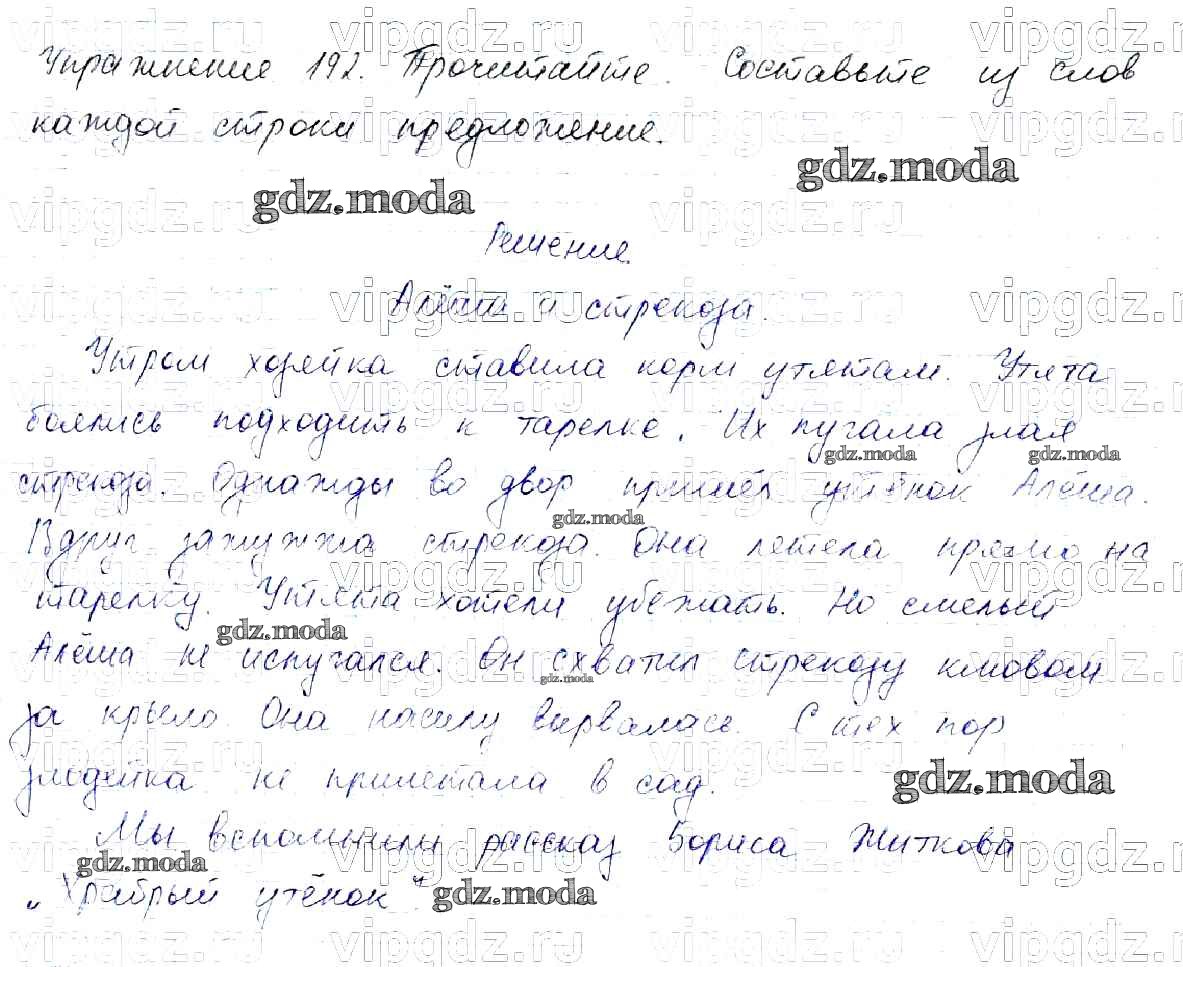 Упражнение 192. Прочитайте. Составьте из слов
каждой строки предложение.
gdz.moda
gdz.moda
Решение.
Алёша и стрекоза.
Утром хозяйка ставила корм утятам. Утята
боялись подходить к тарелке. Их пугала злая
gdz.moda gdz.moda
стрекоза. Однажды во двор пришёл утёнок Алёша.
gdz.moda
Вдруг зажужжа стрекоза. Она летела прямо на
тарелку. Утята хотели убежать. Но смелый
gdz.moda
Алёша не испугался. Он схватил стрекозу клювом
gdz.moda
за крыло. Она насилу вырвалась. С тех пор
злодейка не прилетала в сад.
gdz.moda
Мы вспомнили рассказ Бориса Житкова
gdz.moda
„Храбрый утёнок".
gdz.moda
vipgdz.ru vipgdz.ru vipgdz.ru vipgdz.ru